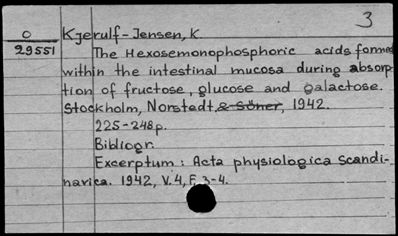 3
O
29551
Kjerulf-Jensen, K.
The Hexosemonophosphoric acids formed
within the intestinal mucosa during absorp-
tion of fructose, glucose and galactose.
Stockholm, Norstedt & Söner, 1942.
225-248p.
Bibliogr.
Excerptum: Acta physiologica Scandi-
navica. 1942, V. 4, F. 3-4.